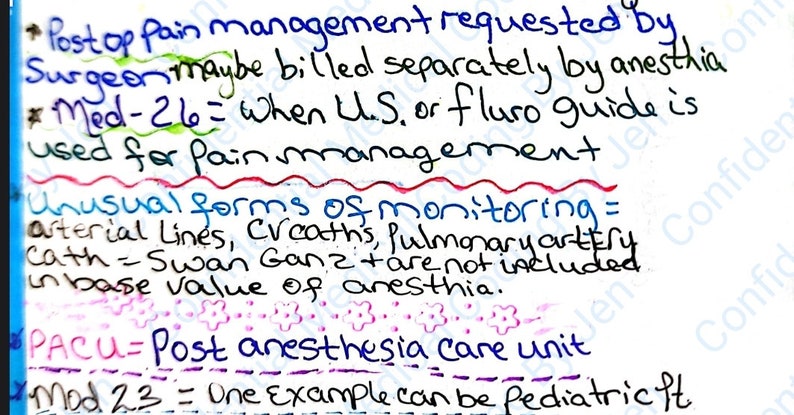 * Post op pain management requested by
Surgeon maybe billed separately by anesthia
* Med-26 = when U.S. or fluro guide is
used for pain management
unusual forms of monitoring =
arterial Lines, CV caths, Pulmonary artery
cath = Swan Ganz + are not included
in base value of anesthia.
PACU = Post anesthesia care unit
* Mod 23 = One Example can be Pediatric pt